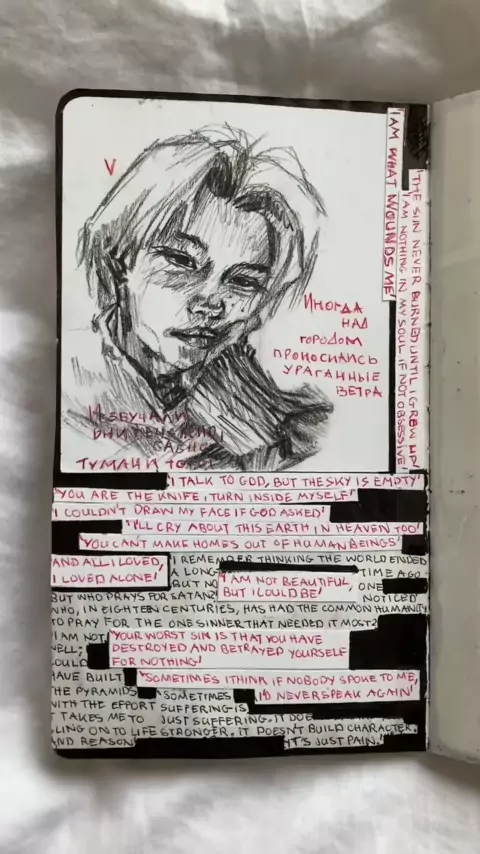 V
Иногда
над
городом
проносились
ураганные
ветра
дни
туман и
'I AM WHAT WOUNDS ME'
'THE SIN NEVER BURNED UNTIL I GREW UP'
'I AM NOTHING IN MY SOUL IF NOT OBSESSIVE'
'I TALK TO GOD, BUT THE SKY IS EMPTY'
'YOU ARE THE KNIFE I TURN INSIDE MYSELF'
'I COULDN'T DRAW MY FACE IF GOD ASKED'
'I'LL CRY ABOUT THIS EARTH IN HEAVEN TOO'
'YOU CAN'T MAKE HOMES OUT OF HUMAN BEINGS'
'AND ALL I LOVED,
I LOVED ALONE'
I REMEMBER THINKING THE WORLD ENDED
A LONG TIME AGO
BUT NO ONE
NOTICED
'I AM NOT BEAUTIFUL,
BUT I COULD BE'
BUT WHO PRAYS FOR SATAN?
WHO, IN EIGHTEEN CENTURIES, HAS HAD THE COMMON HUMANITY
TO PRAY FOR THE ONE SINNER THAT NEEDED IT MOST?
'YOUR WORST SIN IS THAT YOU HAVE
DESTROYED AND BETRAYED YOURSELF
FOR NOTHING'
I AM NOT
WELL;
COULD
HAVE BUILT
THE PYRAMIDS
WITH THE EFFORT
IT TAKES ME TO
CLING ON TO LIFE
AND REASON'
'SOMETIMES I THINK IF NOBODY SPOKE TO ME,
I'D NEVER SPEAK AGAIN'
'SOMETIMES
SUFFERING IS
JUST SUFFERING. IT DOE
STRONGER. IT DOESN'T BUILD CHARACTER.
IT'S JUST PAIN.'